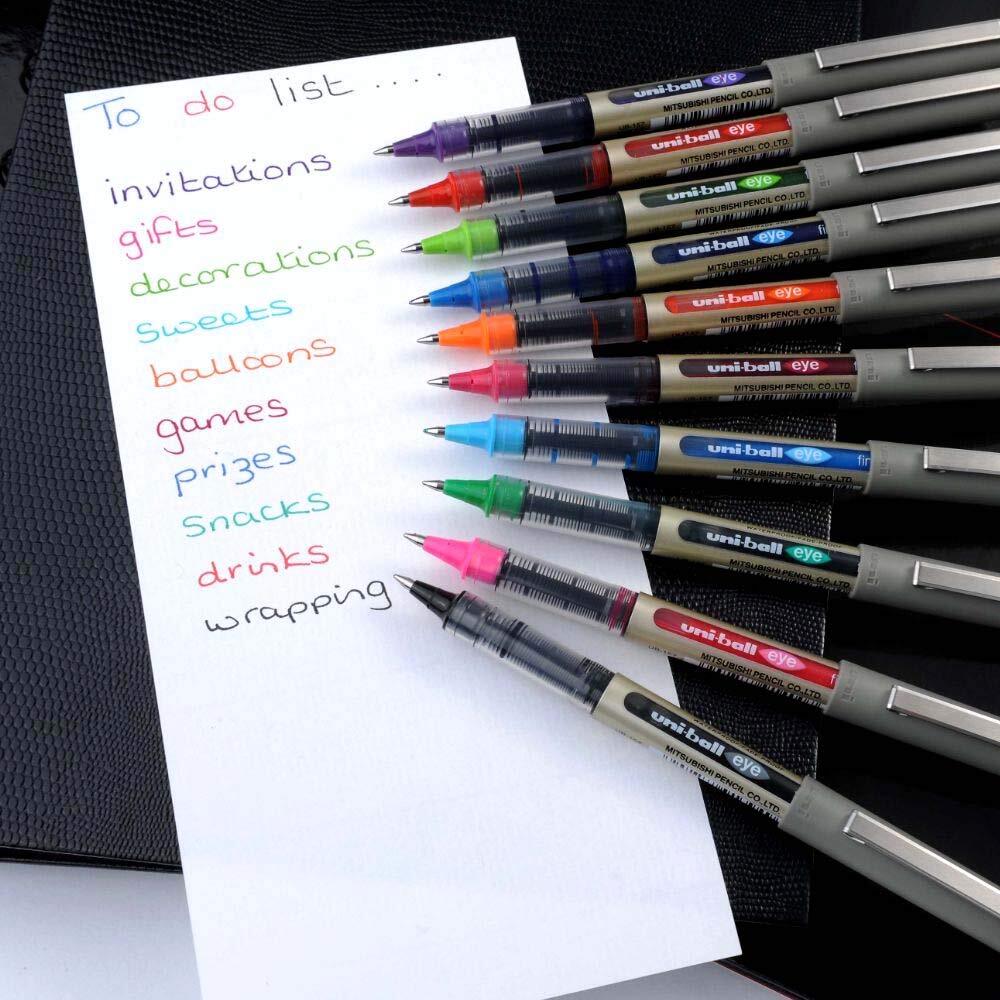 To do list ....
invitations
gifts
decorations
sweets
balloons
games
prizes
snacks
drinks
wrapping
uni-ball eye
MITSUBISHI PENCIL CO.,LTD.
UB-157
uni-ball eye
MITSUBISHI PENCIL CO.,LTD.
uni-ball eye
MITSUBISHI PENCIL CO.,LTD.
uni-ball eye fi
MITSUBISHI PENCIL CO.,LTD.
uni-ball eye
MITSUBISHI PENCIL CO.,LTD.
uni-ball eye
MITSUBISHI PENCIL CO.,LTD.
uni-ball eye fin
MITSUBISHI PENCIL CO.,LTD.
uni-ball eye
MITSUBISHI PENCIL CO.,LTD.
uni-ball eye f
MITSUBISHI PENCIL CO.,LTD.
uni-ball eye
MITSUBISHI PENCIL CO.,LTD.